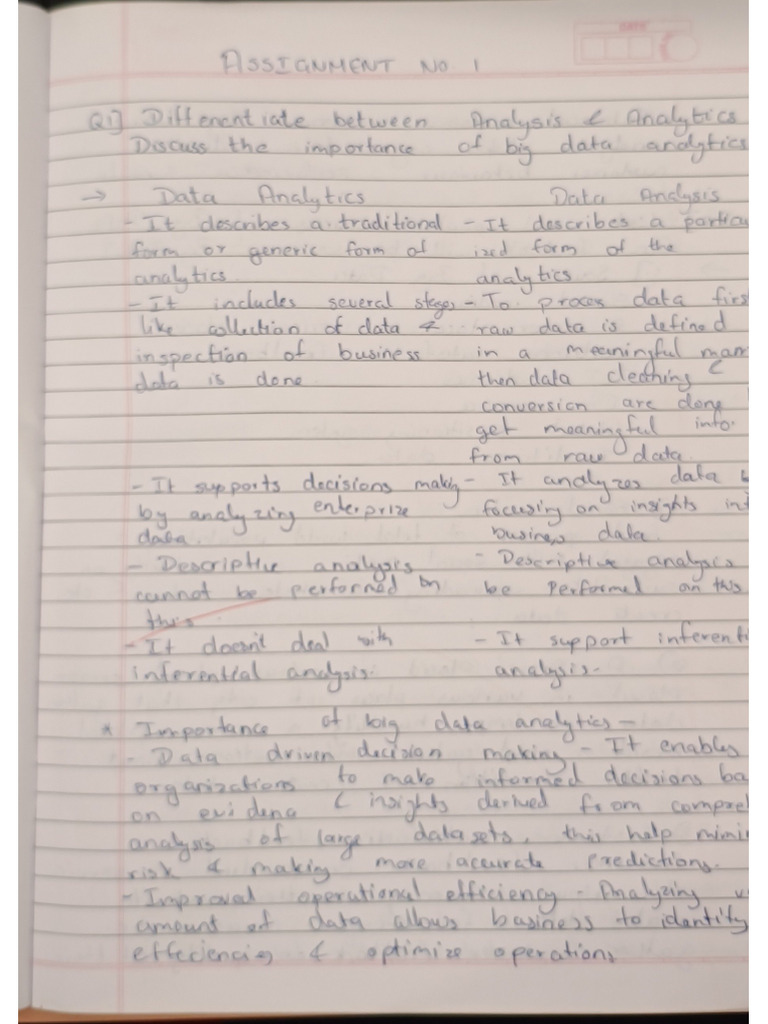 DATE
ASSIGNMENT NO. 1
Q1] Differentiate between Analysis & Analytics
Discuss the importance of big data analytics
→ Data Analytics
- It describes a traditional
form or generic form of
analytics
- It includes several stages
like collection of data &
inspection of business
data is done
- It supports decisions making
by analyzing enterprize
data.
- Descriptive analysis
cannot be performed on
this.
- It doesn't deal with
inferential analysis.
Data Analysis
- It describes a particu
ized form of the
analytics
- To proces data firs
raw data is defined
in a meaningful man
then data cleaning &
conversion are done
get meaningful info.
from raw data.
- It analyzes data
focusing on insights int
business data.
- Descriptive analysis
be performed on this
- It support inferenti
analysis.
* Importance of big data analytics -
- Data driven decision making - It enables
organizations to make informed decisions ba
on evidenc & insights derived from compre
analysis of large datasets, this help minim
risk & making more accurate predictions.
- Improval operational efficiency - Analyzing v
amount of data allows business to identify
effeciencies & optimize operations